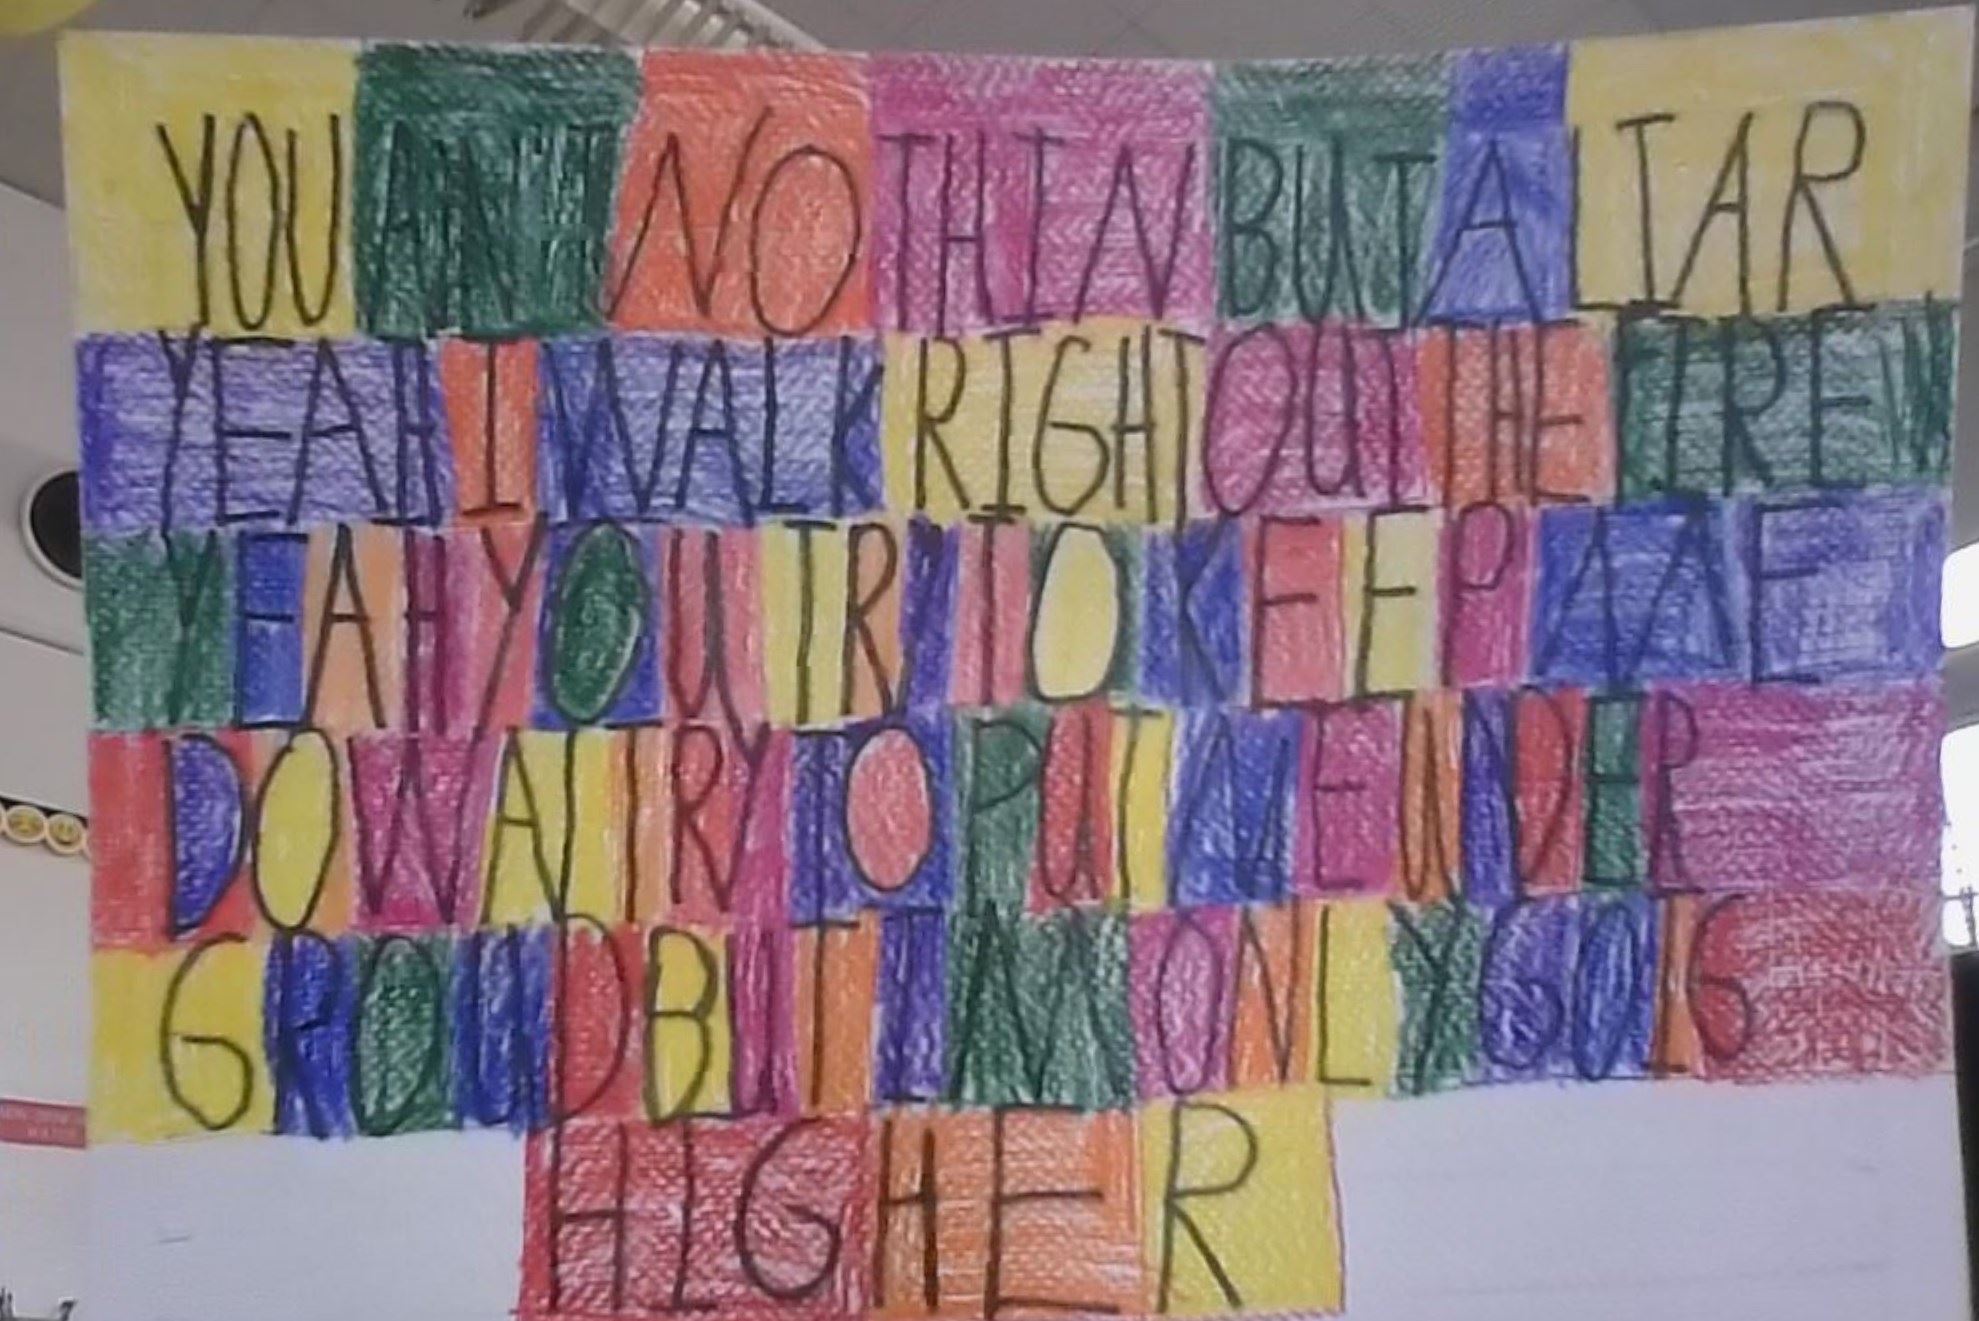 YOU AIN'T NOTHIN BUT A LIAR
YEAH I WALK RIGHT OUT THE FIRE W
YEAH YOU TRY TO KEEP ME
DOWN TRY TO PUT ME UNDER
GROUND BUT IM ONLY GOIG
HIGHER